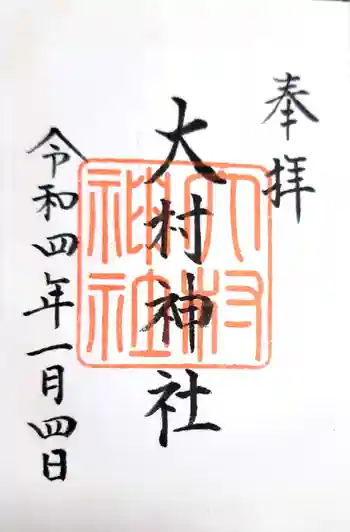 奉拝
大村神社
大村神社
令和四年一月四日